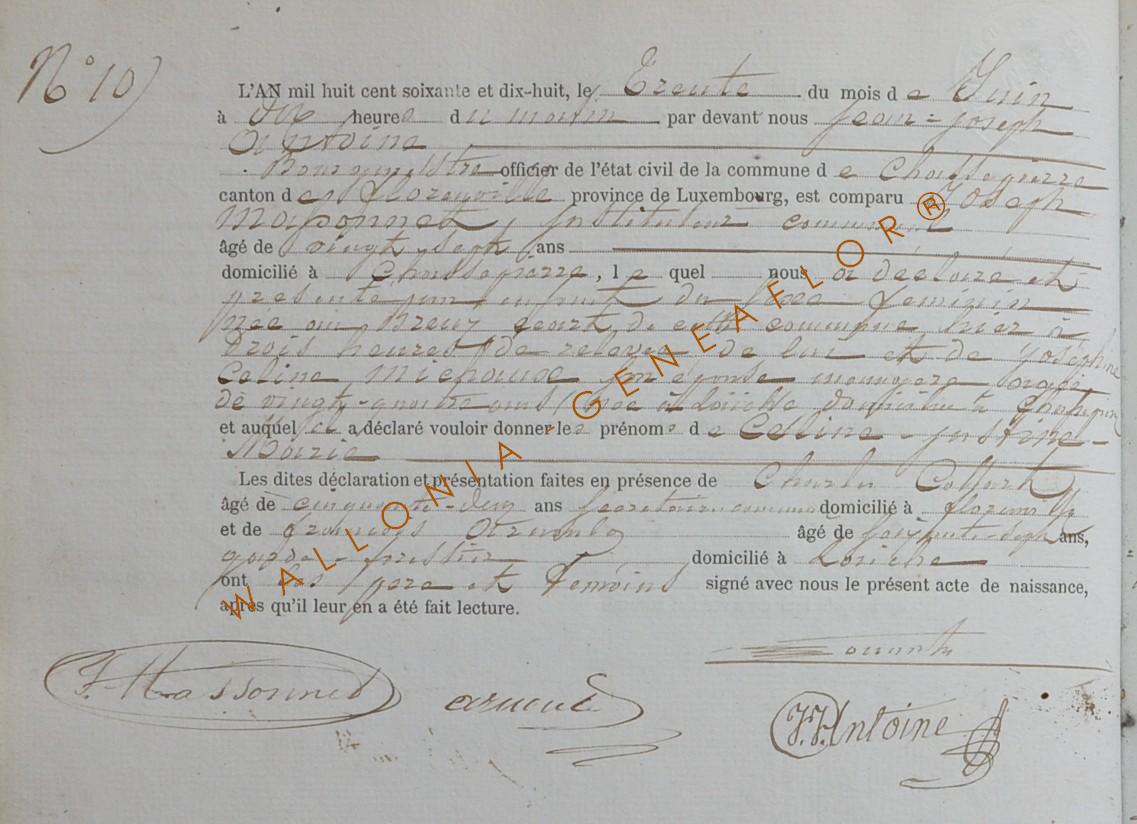 N° 10
L'AN mil huit cent soixante et dix-huit, le Trente du mois de Juin
à dix heures du matin par devant nous Jean-Joseph
Antoine
Bourgmestre officier de l'état civil de la commune de Chassepierre
canton de Florenville province de Luxembourg, est comparu Joseph
Massonnet, Instituteur communal
âgé de vingt sept ans
domicilié à Chassepierre, lequel nous a déclaré et
présenté un enfant du sexe féminin
née au cette commune hier à
trois heures de relevée de lui et de Joséphine
Celine son épouse ménagère âgée
de vingt-quatre ans née à Laiche domiciliée à Chassepierre
et auquel il a déclaré vouloir donner les prénoms de Celine-Justine-
Maria
Les dites déclaration et présentation faites en présence de Charles Collart
âgé de cinquante-deux ans Secrétaire communal domicilié à Florenville
et de François Arnould âgé de soixante-sept ans,
garde-forestier domicilié à Laiche
ont les père et témoins signé avec nous le présent acte de naissance,
après qu'il leur en a été fait lecture.
J. Massonnet
arnould
J. J. Antoine
WALLONIA - GENEAFLOR®